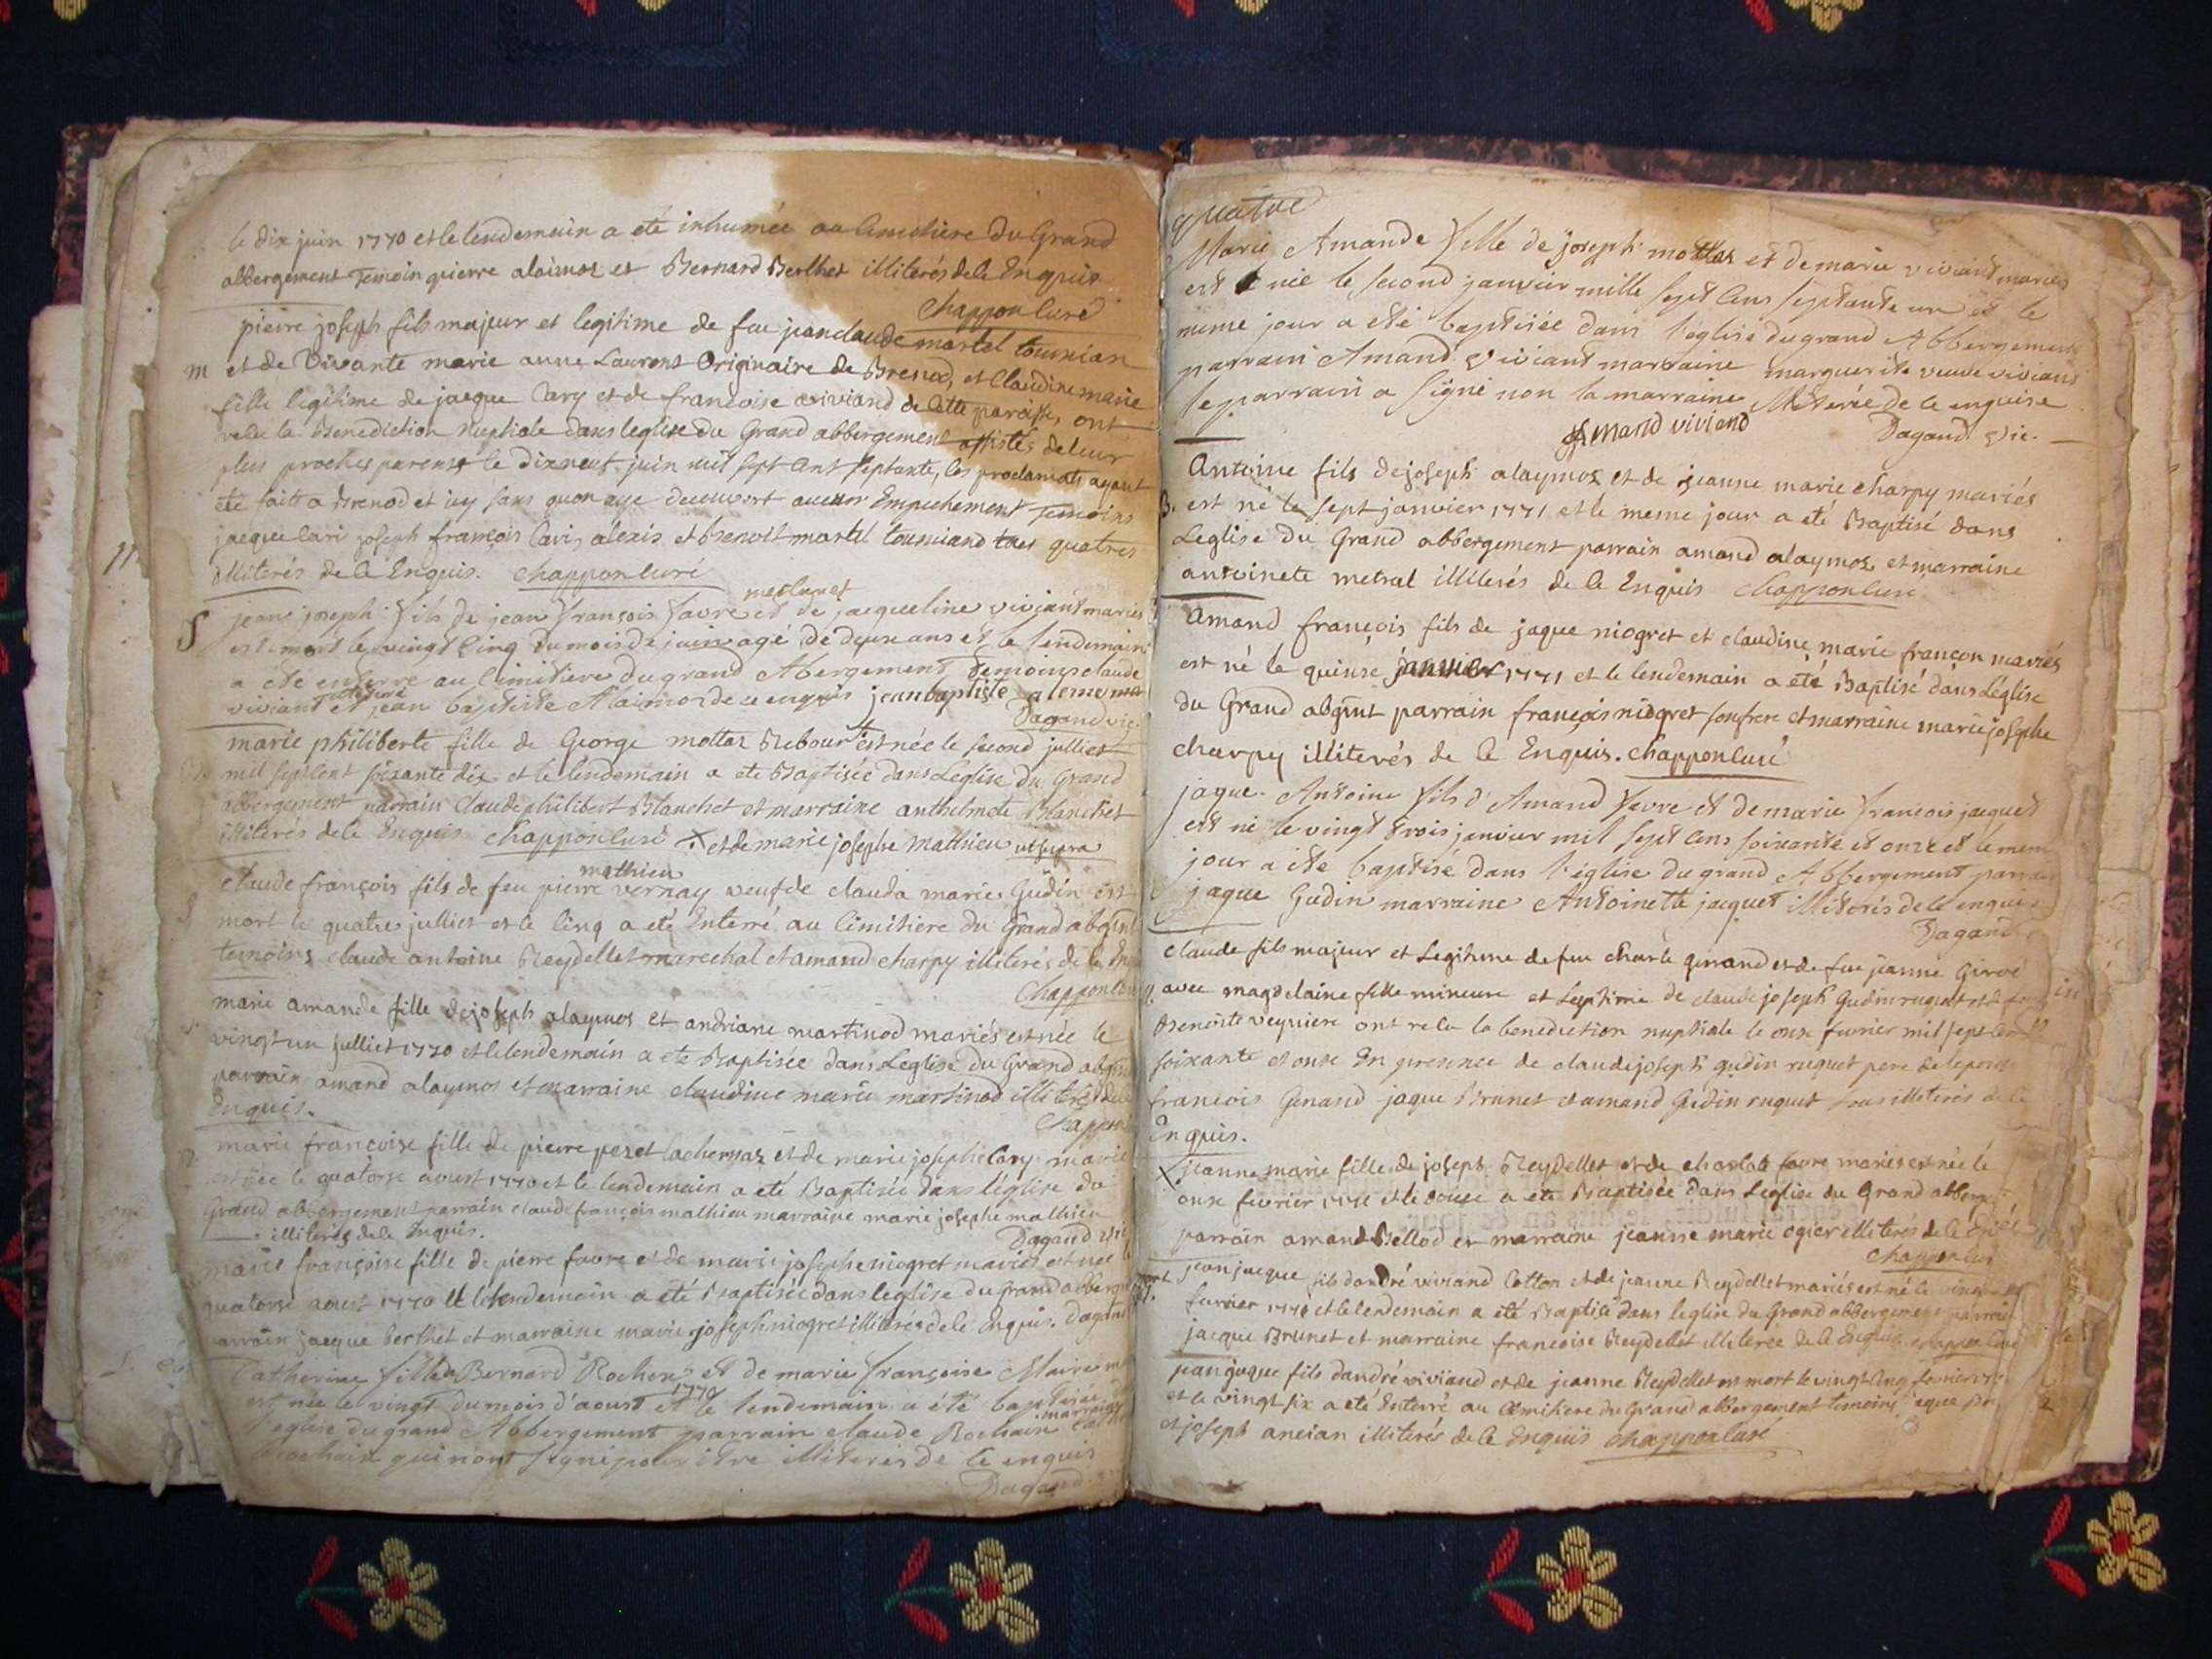 le dix juin 1770 et le lendemain a eté inhumée au Cimetiere du Grand
abbergement Temoin pierre alaimos et Bernard Berthet illiterés de le Enquis
Chappon Curé
pierre joseph fils majeur et legitime de feu jean claude martel tournian
m et de vivante marie anne Laurens Originaire de Brenod, et Claudine marie
fille legitime de jacque Cary et de francoise viviand de Cette paroisse, ont
recu la Benediction Nuptiale dans leglise du Grand abbergement assistés de leur
plus proches parens le dixneuf juin mil sept Cens septante, les proclamats ayant
eté fait a Brenod et icy sans quon aye decouvert aucun Empechement temoins
jacque Cari joseph françois Cari, alexis et Benoit martel tourniand tous quatres
illiterés de le Enquis. Chappon Curé
S jean joseph fils de jean françois favre et de jacqueline viviant mariés
est mort le vingt Cinq du mois de juin agé de deux ans et le lendemain
a été enterré au Cimitiere du grand Abergement temoins claude
viviant et jean baptiste Alaimos de ce enquis jean baptiste alemos
Dagand vic.
marie philiberte fille de George mottaz Rebour + est née le second julliet
mil septCent soixante dix et le lendemain a eté Baptisée dans Leglise du Grand
abbergement parrain Claude philibert Blanchet et marraine anthelmete Blanchet
illiterés de le Enquis Chappon Curé + et de marie josephe mathieu ut supra
mathieu
Claude françois fils de feu pierre vernay veuf de clauda marie Gudin est
S mort le quatre julliet et le Cinq a eté Enterré au Cimitiere du Grand abgmt
temoins claude antoine Reydellet marechal et amand charpy illiterés de le En
Chappon Cu
marie amande fille de joseph alaymos et andriane martinod mariés est née le
vingt un julliet 1770 et le lendemain a eté Baptisée dans Leglise du Grand abgm
parrain amand alaymos et marraine claudine marie martinod illiterés de le
Enquis.
Chappon
marie francoise fille de pierre peret lachernaz et de marie josephe Cary marié
est née le quatorse aoust 1770 et le lendemain a eté Baptisée dans léglise du
Grand abbergement parrain claude françois mathieu marraine marie josephe mathieu
illiterés de le Enquis.
Dagand vic
marie françoise fille de pierre favre et de marie josephe niogret mariés est née le
quatorse aoust 1770 et le lendemain a eté Baptisée dans leglise du Grand abberg
parrain jacque berthet et marraine marie joseph niogret illiterés de le Enquis. Dagand
Catherine fille Bernard Rochon et de marie françoise Maire
est née le vingt du mois d'aoust 1770 et le lendemain a été baptisée
l'eglise du grand Abbergement parrain claude Rochain marraine
Rochain qui n'ont signé pour être illiterés de le enquis
Dagand
quatre
Marie Amande fille de joseph mottaz et de marie viviant mariés
est née le second janvier mille sept Cens septante un et le
meme jour a été baptisée dans l'eglise du grand Abbergement
parrain Amand viviant marraine marguerite veuve viviant
le parrain a signé non la marraine illiterée de le enquise
Amand viviand Dagand vic.
Antoine fils de joseph alaymos et de jeanne marie charpy mariés
B. est né le sept janvier 1771 et le meme jour a eté Baptisé dans
Leglise du Grand abbergement parrain amand alaymos et marraine
antoinete metral illiterés de le Enquis Chappon Curé
Amand françois fils de jaque niogret et claudine marie françon mariés
est né le quinse janvier 1771 et le lendemain a eté Baptisé dans Léglise
du Grand abgmt parrain françois niogret son frere et marraine marie josephe
charpy illiterés de le Enquis. Chappon Curé
jaque Antoine fils d'Amand favre et de marie françois jacquet
est né le vingt trois janvier mil sept Cens soixante et onze et le mem
jour a été baptisé dans l'église du grand Abbergement parrain
jaque Gudin marraine Antoinette jacquet illiterés de le enquis
Dagand
Claude fils majeur et Legitime de feu charle genand et de feu jeanne Giroc
avec magdelaine fille mineure et Legitime de claude joseph Gudin ruquet et de feu
Benoite veyriere ont recu la benediction nuptiale le onse fuvrier mil sept Cens
soixante et onse En presence de claude joseph gudin ruquet pere de lepouse
francois Genand jaque Brunet et amand Gudin ruquet tous illiterés de le
Enquis.
jeanne marie fille de joseph Reydellet et de charlote favre mariés est née le
onse fevrier 1771 et le douse a eté Baptisée dans Leglise du Grand abberg
parrain amand Bellod et marraine jeanne marie ogier illiterés de le Enq
Chappon Curé
jean jacque fils dandré viviand Cotton et de jeanne Reydellet mariés est né le vingt
fuvrier 1771 et le lendemain a eté Baptisé dans leglise du Grand abbergement parrain
jacque Brunet et marraine francoise Reydellet illiterée de le Enquis Chappon Curé
jean jaque fils dandré viviand et de jeanne Reydellet est mort le vingt Cinq fevrier
et le vingt six a eté Enterré au Cimitiere du Grand abbergement temoins jaque
et joseph ancian illiterés de le Enquis Chappon Curé